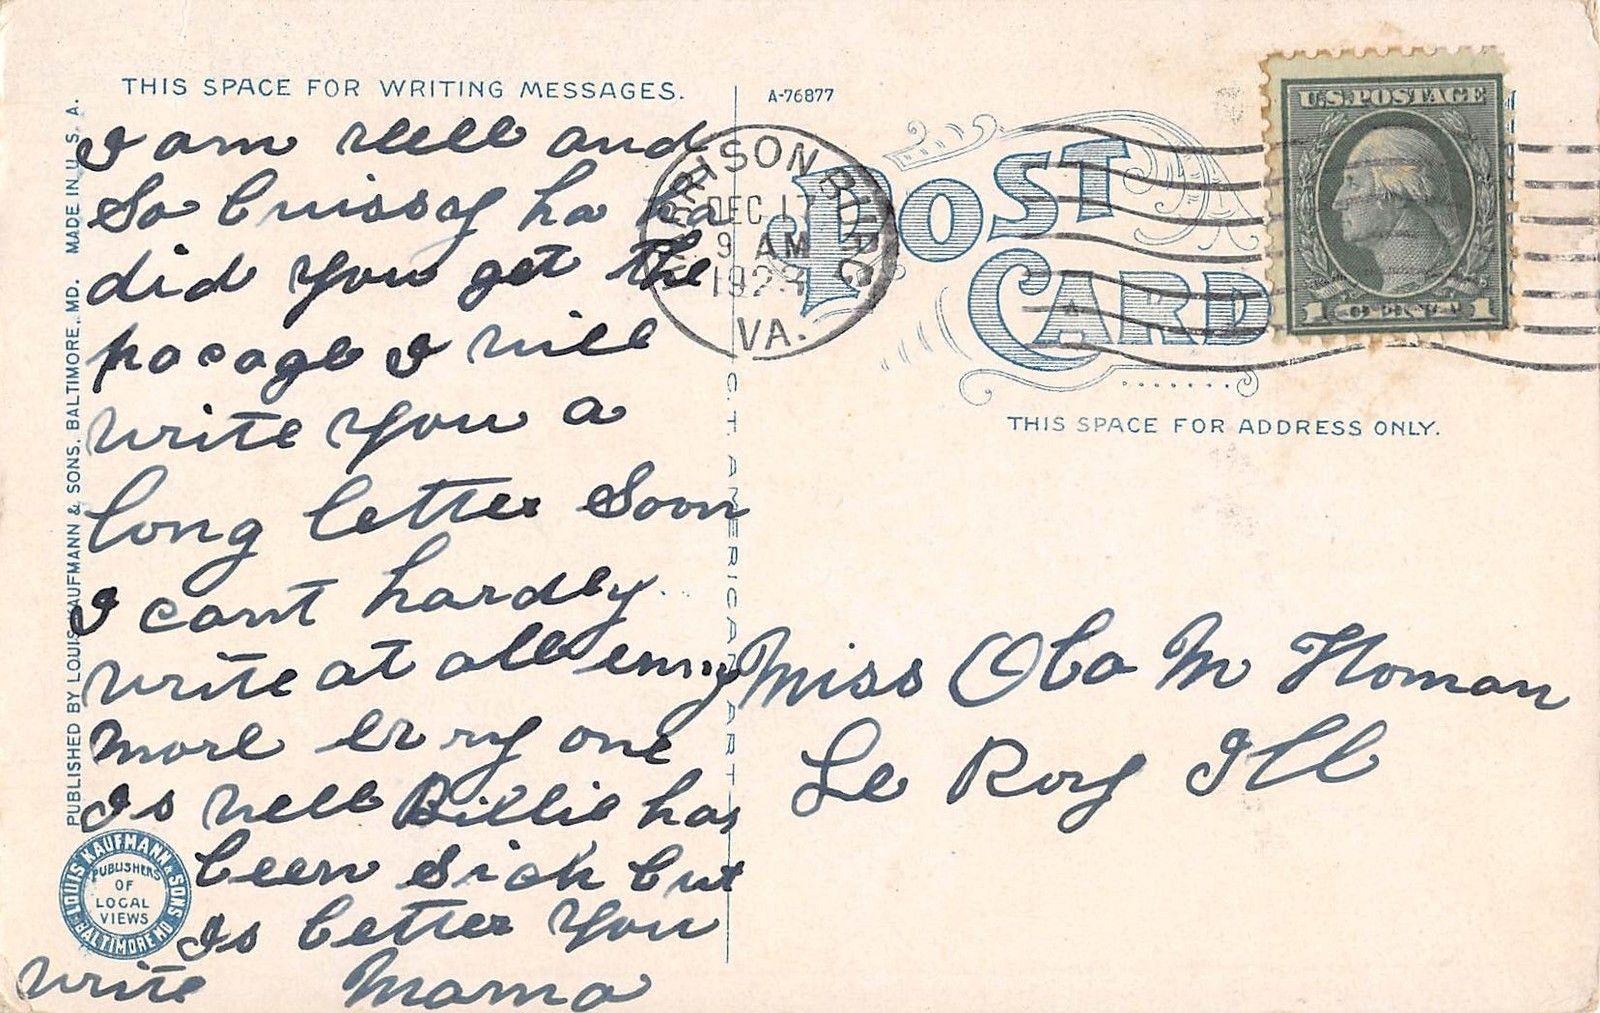 THIS SPACE FOR WRITING MESSAGES.
I am well and
So buissy ha ha
did you get the
pacage I will
write you a
long letter Soon
I cant hardly
write at all eny
more every one
Is well Billie has
been sick but
Is better you
write Mama
PUBLISHED BY LOUIS KAUFMANN & SONS, BALTIMORE, MD. MADE IN U. S. A.
LOUIS KAUFMANN & SONS
BALTIMORE MD
PUBLISHERS
OF
LOCAL
VIEWS
C. T. AMERICAN ART
A-76877
HARRISONBURG
DEC 17
9 AM
VA.
POST
CARD
U.S. POSTAGE
1 CENT 1
THIS SPACE FOR ADDRESS ONLY.
Miss Oba M Homan
Le Roy Ill